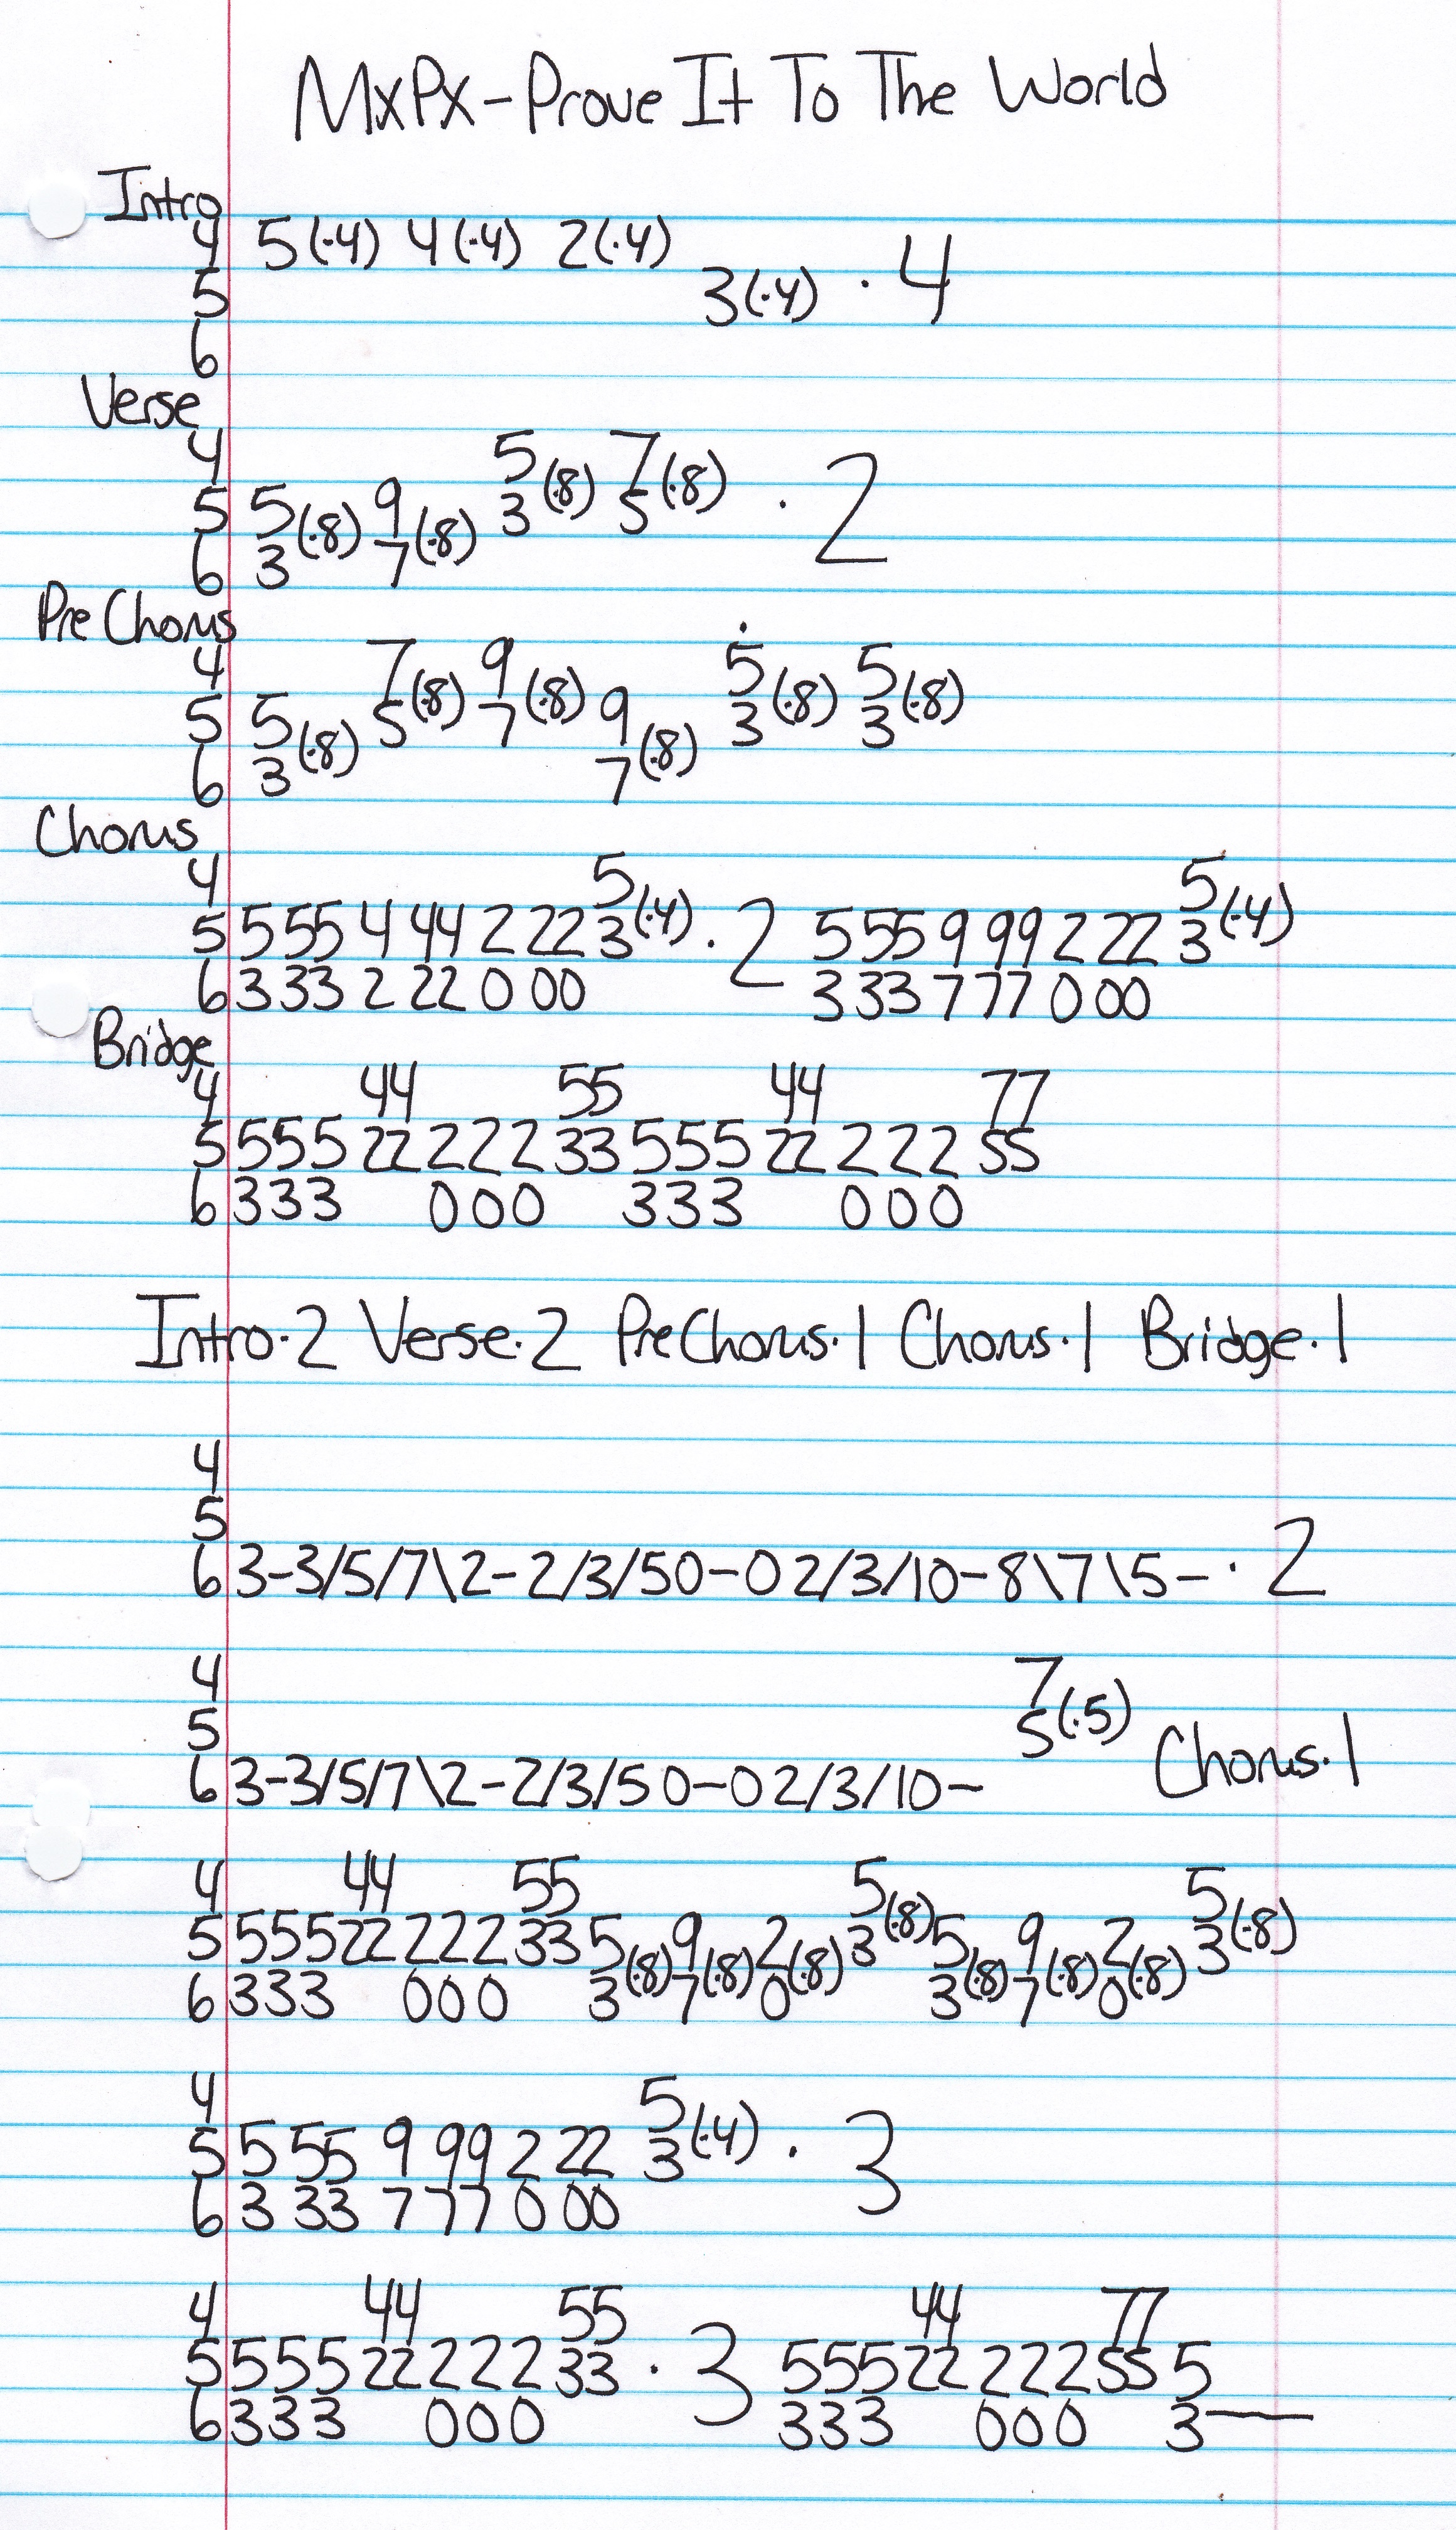 MxPx-Prove It To The World
Intro
4 5(·4) 4(·4) 2(·4)
5 3(·4) · 4
6
Verse
4 5 7
5 5(·8) 9(·8) 3(·8) 5(·8) · 2
6 3 7
Pre Chorus
4 7 9 5 5
5 5 5(·8) 7(·8) 9 3(·8) 3(·8)
6 3(·8) 7(·8)
Chorus
4 5 5
5 5 55 4 44 2 22 3(·4) · 2 5 55 9 99 2 22 3(·4)
6 3 33 2 22 0 00 3 33 7 77 0 00
Bridge
4 44 55 44 77
5 555 22 222 33 555 22 222 55
6 333 000 333 000
Intro·2 Verse·2 PreChorus·1 Chorus·1 Bridge·1
4
5
6 3-3/5/7\2-2/3/5 0-0 2/3/10-8\7\5- · 2
4 7
5 5(·5) Chorus·1
6 3-3/5/7\2-2/3/5 0-0 2/3/10-
4 44 55 5 5
5 555 22 222 33 5 9 2 3(·8) 5 9 2 3(·8)
6 333 000 3(·8) 7(·8) 0(·8) 3(·8) 7(·8) 0(·8)
4 5
5 5 55 9 99 2 22 3(·4) · 3
6 3 33 7 77 0 00
4 44 55 44 77
5 555 22 222 33 · 3 555 22 222 55 5
6 333 000 333 000 3—